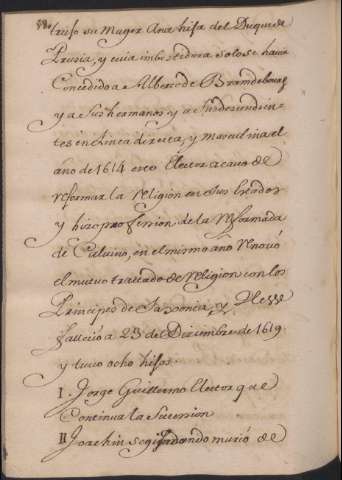 truso su Muger Ana hija del Duque de
Prusia, y cuia imbestidura solo se havia
Concedido a Alberto de Brandebourg
y a sus hermanos y a sus desendien-
tes en linea directa, y masculina el
año de 1614 este Elector acavo de
reformar la religion en sus Estados
y hizo profession de la reformada
de Calvino, en el mismo año renovò
el mutuo trattado de religion con los
Principes de Saxonia, y Hesse
fallecio a 23 del Diciembre de 1619
y tuvo ocho hijos.
I. Jorge Guillermo Elector que
Continua la Succession
II Joachin Segismundo murió de